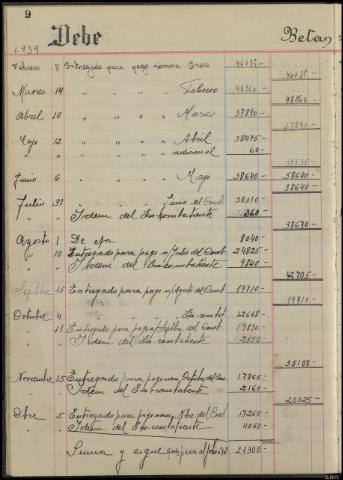 9
1.939 Debe Betan
Febrero 8 Entregado para pago nómina Enero 46035-
46035-
Marzo 14 " " " " Febrero 48360-
48360-
Abril 10 " " " " Marzo 37890-
37890-
Mayo 12 " " " " Abril 38475-
" " " " " adicional 60-
38535-
Junio 6 " " " " Mayo 38640- 38640-
38640
Julio 31 " " " Junio del Comb. 38310-
" " Idem del Ex-combatiente 360-
38670-
Agosto 1 De 8040-
" 10 Entregado para pago n/ Julio del Comb. 24825-
" " Idem del Excombatiente 9840-
42705-
Septbre 15 Entregado para pago n/ Agosto del Comb. 19710-
19710-
Octubre 4 " " " " Ex-combat. 12668-
" 11 Entregado para pago n/ Septbre del Comb. 19890-
" " Idem del Ex-combatiente 2550-
35108-
Noviembre 15 Entregado para pago nom. Octubre del Comb. 17865-
" " Idem del Excombatiente 2160-
20025-
Dbre 5 Entregado para pago nom. Nbre del Comb. 17250-
" " Idem del Ex-combatiente 4050-
Suma y sigue 21300-